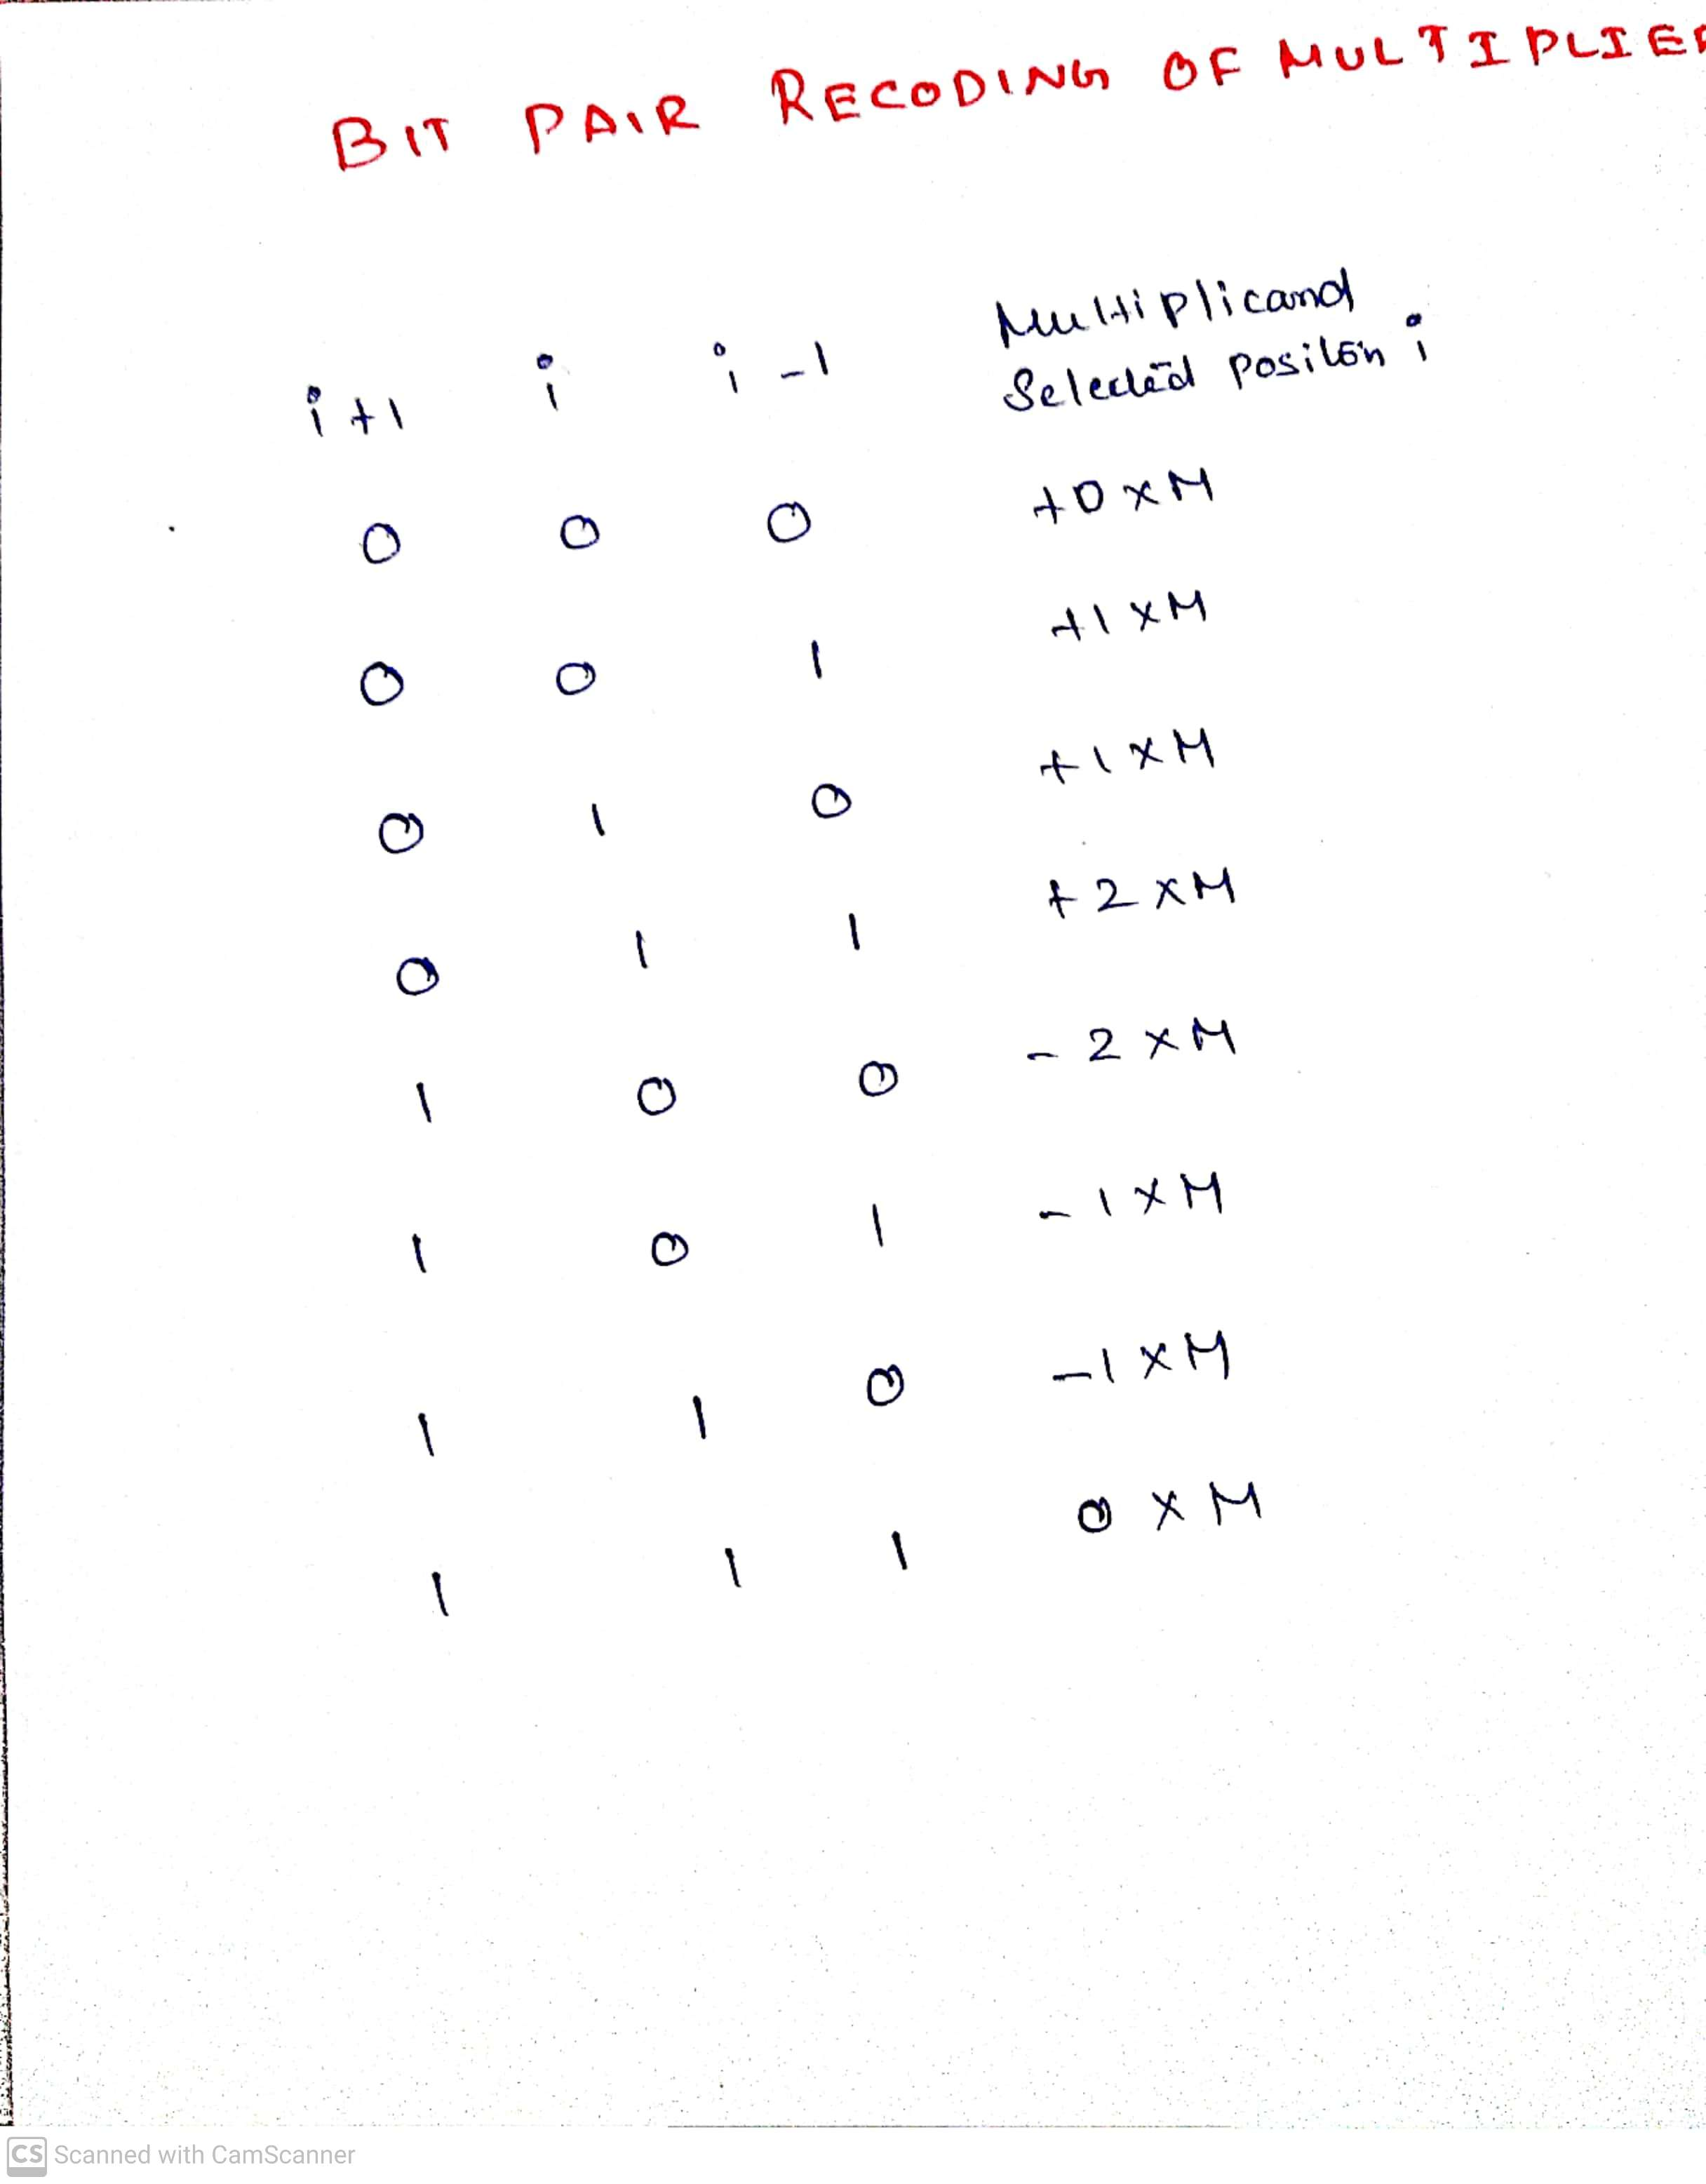 BIT PAIR RECODING OF MULTIPLIER
i+1 i i-1 Multiplicand
Selected Position i
0 0 0 +0 x M
0 0 1 +1 x M
0 1 0 +1 x M
0 1 1 +2 x M
1 0 0 -2 x M
1 0 1 -1 x M
1 1 0 -1 x M
1 1 1 0 x M
CS Scanned with CamScanner